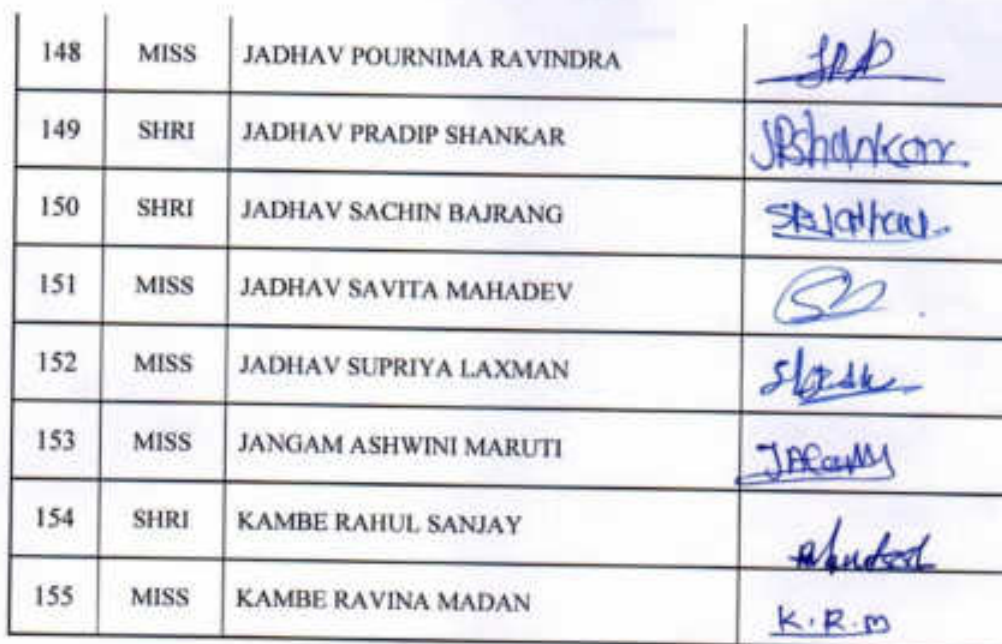 148 MISS JADHAV POURNIMA RAVINDRA
149 SHRI JADHAV PRADIP SHANKAR JPShankar.
150 SHRI JADHAV SACHIN BAJRANG
151 MISS JADHAV SAVITA MAHADEV
152 MISS JADHAV SUPRIYA LAXMAN
153 MISS JANGAM ASHWINI MARUTI
154 SHRI KAMBE RAHUL SANJAY
155 MISS KAMBE RAVINA MADAN K.R.M